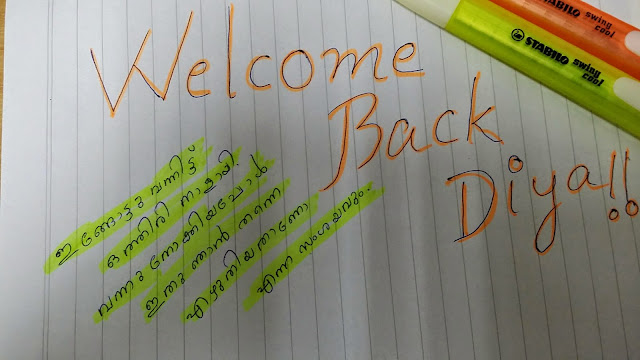 Welcome
Back
Diya!!
ഇങ്ങോട്ടു വന്നിട്ട്
ഒത്തിരി നാളായി.
വന്നു നോക്കിയപ്പോൾ
ഇതു ഞാൻ തന്നെ
എഴുതിയതാണോ
എന്ന സംശയവും.
STABILO swing cool
STABILO swing cool